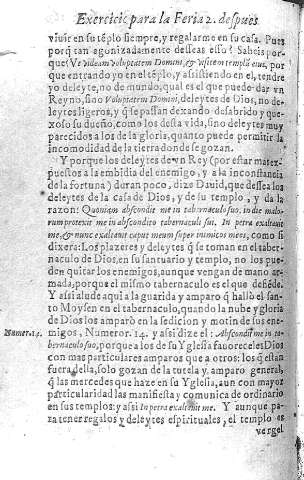 Exercicio para la Feria 2. despues
viuir en su tẽplo siempre, y regalarme en su casa. Pues
porq̃ tan agonizadamente desseas esso? Sabeis por-
que? Vt videam voluptatem Domini, & visitem templũ eius, por
que entrando yo en el tẽplo, y assistiendo en el, tendre
yo deleyte, no de mundo, qual es el que puede dar vn
Reyno, sino Voluptatem Domini, deleytes de Dios, no de-
leytes ligeros, y q̃ se passan dexando desabrido y que-
xoso su dueño, como los desta vida, sino deleytes muy
parecidos a los de la gloria, quanto puede permitir la
incomodidad de la tierra donde se gozan.
Y porque los deleytes de vn Rey (por estar mater-
puestos a la embidia del enemigo, y a la inconstancia
de la fortuna) duran poco, dize Dauid, que dessea los
deleytes de la casa de Dios, y de su templo, y da la
razon: Quoniam abscondit me in tabernaculo suo, in die malo-
rum protexit me in abscondito tabernaculi sui. In petra exaltauit
me, & nunc exaltauit caput meum super inimicos meos, como si
dixera: Los plazeres y deleytes q̃ se toman en el taber-
naculo de Dios, en su santuario y templo, no los pue-
den quitar los enemigos, aunque vengan de mano ar-
mada, porque el mismo tabernaculo es el que defiẽde.
Y assi alude aqui a la guarida y amparo q̃ hallò el san-
to Moysen en el tabernaculo, quando la nube y gloria
de Dios los amparò en la sedicion y motin de sus ene-
Numer. 14. migos, Numeror. 14. y assi dize el: Abscondit me in ta-
bernaculo suo, porque a los de su Yglesia fauorece Dios
con mas particulares amparos que a otros: los q̃ estàn
fuera della, solo gozan de la tutela y amparo general,
q̃ las mercedes que haze en su Yglesia, aun con mayor
particularidad las manifiesta y comunica de ordinario
en sus templos: y assi In petra exaltauit me. Y aunque pa-
ra tener regalos y deleytes espirituales, el templo es
vergel